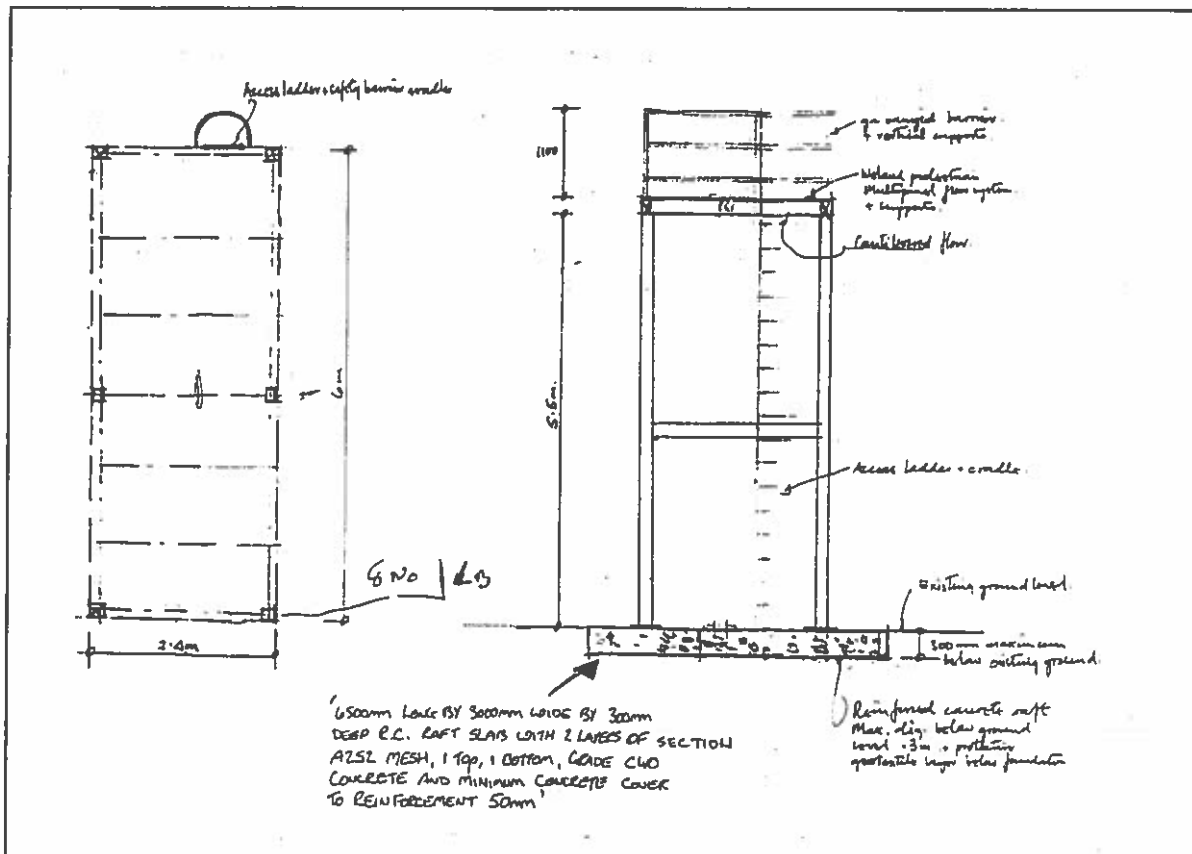 Access ladder + safety barrier cradle
6m
2.4m
6 No
1100
5.5m.
galvanised barrier
+ vertical supports
pedestrian
Multipanel floor system
+ supports.
Cantilevered floor.
Access ladder + cradle.
Existing ground level.
300mm maximum
below existing ground.
Reinforced concrete raft
Max. dig. below ground
level .3m + protective
geotextile layer below foundation
'6500mm LONG BY 3000mm WIDE BY 300mm
DEEP R.C. RAFT SLAB WITH 2 LAYERS OF SECTION
A252 MESH, 1 TOP, 1 BOTTOM, GRADE C40
CONCRETE AND MINIMUM CONCRETE COVER
TO REINFORCEMENT 50mm'